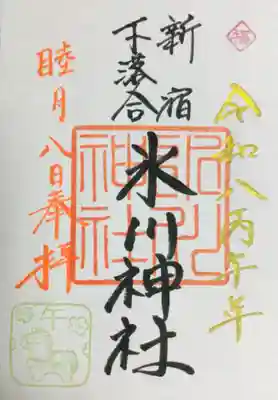 令和八丙午年
新宿
下落合
氷川神社
睦月八日奉拝
午